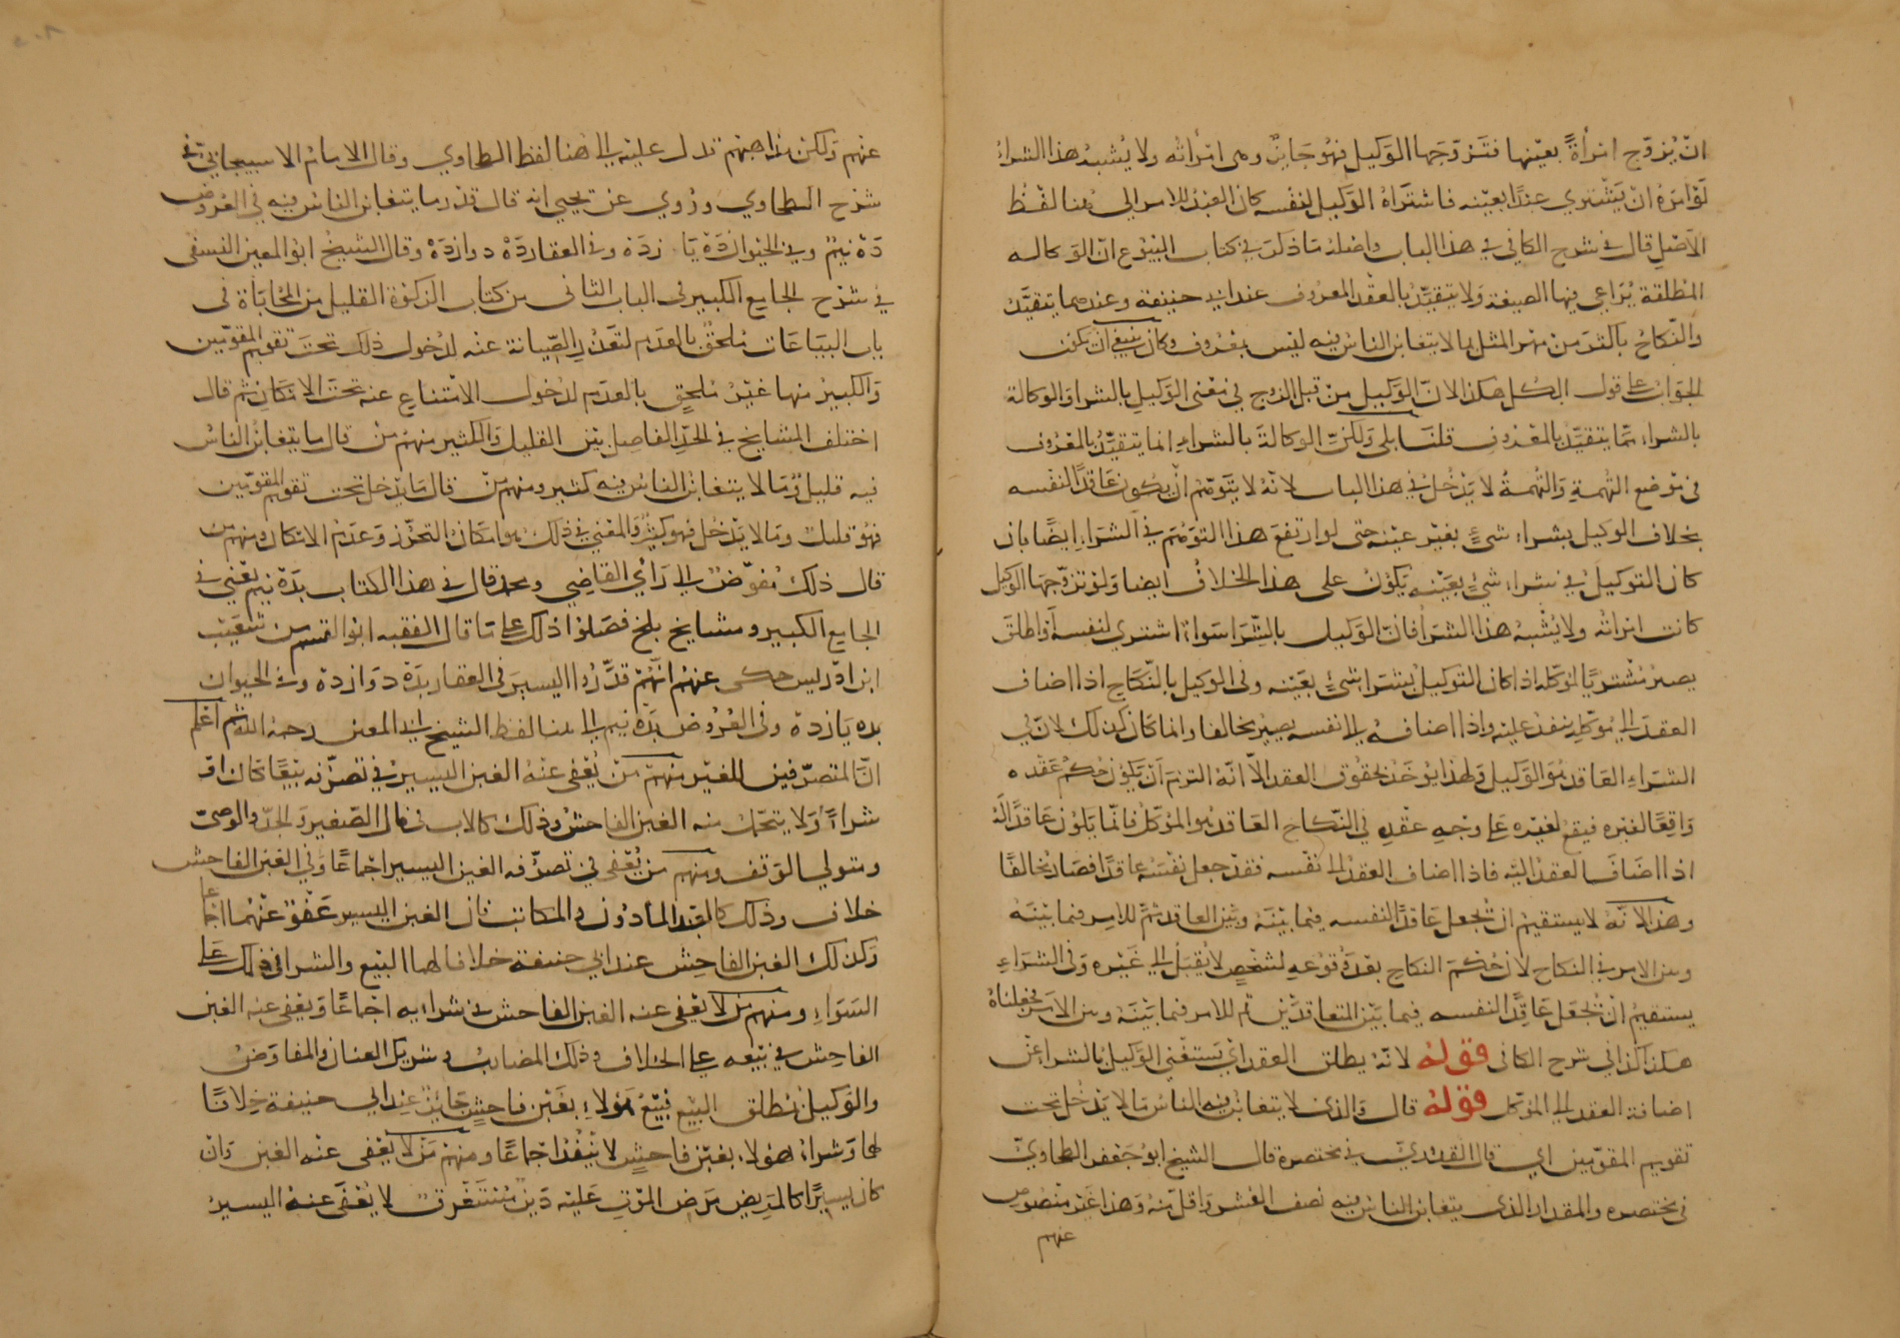 ان يُزوّج امرأةً بعينها فتزوجها الوكيل فهو جايز وهي امرأته ولا يُشبه هذا الشراء
لو امره ان يشتري عبدًا بعينه فاشتراه الوكيل لنفسه كان العبد للامر الى هنا لفظ
الاصل قال في شرح الكافي في هذا الباب واصله ما ذكر في كتاب البيوع ان الوكالة
المطلقة يُراعي فيها الصيغة ولا يتقيّد بالعقد المعروف عند ابي حنيفة وعندهما يتقيّد
والنكاح باكثر من مهر المثل بما لا يتغابن الناس فيه ليس بمعروف وكان ينبغي ان يكون
الجواب على قول الكل هكذا لانّ الوكيل من قبل الزوج في معنى الوكيل بالشرا والوكالة
بالشراء مما يتقيّد بالمعروف قلنا بلى ولكنّ الوكالة بالشراء انما يتقيّد بالمعروف
في موضع التهمة والتهمة لا يدخل في هذا الباب لانه لا يتوهم ان يكون عاقدًا لنفسه
بخلاف الوكيل بشراء شيءٍ بغير عينه حتى لو ارتفع هذا التوهّم في الشراء ايضًا بان
كان التوكيل في شراء شيءٍ بعينه يكون على هذا الخلاف ايضا ولو تزوّجها الوكيل
كانت امراته ولا يُشبه هذا الشرا فانّ الوكيل بالشرا سواءً اشترى لنفسه او اطلق
يصير مشتريًا لموكله اذا كان التوكيل بشرا شيءٍ بعينه وفي الوكيل بالنكاح اذا اضاف
العقد الى موكله ينفذ عليه واذا اضافه الى نفسه يصير مخالفا وانما كان كذلك لان في
الشراء العاقد هو الوكيل ولهذا يؤخذ بحقوق العقد الا انه التزم ان يكون حكم عقده
واقعًا لغيره فيقع لغيره على وجه عقده في النكاح العاقد هو الموكل فانما يكون عاقدًا له
اذا اضاف العقد اليه فاذا اضاف العقد الى نفسه فقد جعل نفسه عاقدًا فصار مخالفًا
وهذا لانّه لا يستقيم ان نجعل عاقدًا لنفسه فيما بينه وبين العاقد ثم للامر فيما بينه
وبين الامر في النكاح لان حكم النكاح بعد وقوعه لشخصٍ لا يُقبل الى غيره وفي الشراء
يستقيم ان نجعل عاقدًا لنفسه فيما بين المتعاقدين ثم للامر فيما بينه وبين الامر فجعلناه
هكذا كذا في شرح الكافي قوله لانه يطلق العقد اي يستغني الوكيل بالشرا عن
اضافة العقد الى الموكل قوله قال والذي لا يتغابن فيه الناس ما لا يدخل تحت
تقويم المقوّمين اي قال القدوري في مختصره قال الشيخ ابو جعفر الطحاوي
في مختصره والمقدار الذي يتغابن الناس فيه نصف العشر واقل منه وهذا غير منصوص
عنهم
عنهم ولكن مذاهبهم تدل عليه الى هنا لفظ الطحاوي وقال الامام الاسبيجابي في
شرح الطحاوي وروي عن يحيى انه قال قدر ما يتغابن الناس فيه في العروض
ده نيم وفي الحيوان ده يا زده وفي العقار ده دوازده وقال الشيخ ابو المعين النسفي
في شرح الجامع الكبير في الباب الثاني من كتاب الزكوة القليل من المحاباة في
باب البياعات ملحق بالعدم لتعذر الصيانة عنه لدخول ذلك تحت تقويم المقوّمين
والكبير منها غير ملحق بالعدم لدخول الامتناع عنه تحت الامكان ثم قال
اختلف المشايخ في الحدّ الفاصل بين القليل والكثير منهم من قال ما يتغابن الناس
فيه قليل وما لا يتغابن الناس فيه كثير ومنهم من قال ما يدخل تحت تقويم المقوّمين
فهو قليل وما لا يدخل فهو كثير والمعني في ذلك هو امكان التحرز وعدم الامكان ومنهم من
قال ذلك مفوّض الى رأي القاضي ومحمد قال في هذا الكتاب بده نيم يعني في
الجامع الكبير ومشايخ بلخ فصّلوا ذلك على ما قال الفقيه ابو القسم بن شعيب
ابن ادريس حكى عنهم انهم قدّروا اليسير في العقار بده دوازده وفي الحيوان
بده يازده وفي العروض بده نيم الى هنا لفظ الشيخ ابي المعين رحمه الله ثم اعلم
انّ المتصرّفين للغير منهم من يُعفى عنه الغبن اليسير في تصرّفه بيعًا كان او
شراءً ولا يتحمّل منه الغبن الفاحش وذلك كالاب في مال الصغير والجدّ والوصيّ
ومتولي الوقف ومنهم من يُعفى في تصرّفه الغبن اليسير اجماعًا وفي الغبن الفاحش
خلاف وذلك كالعبد الماذون والمكاتب فان الغبن اليسير عفوٌ عنهما اجماعا
وكذلك الغبن الفاحش عند ابي حنيفة خلافا لهما البيع والشرا في ذلك على
السواء ومنهم من لا يعفى عنه الغبن الفاحش في شرايه اجماعًا ويعفى عنه الغبن
الفاحش في بيعه على الخلاف وذلك المضارب وشريك العنان والمفاوض
والوكيل بمطلق البيع فبيع هولاء بغبن فاحش جايز عند ابي حنيفة خلافًا
لهما وشراء هولاء بغبن فاحش لا ينفذ اجماعًا ومنهم من لا يعفى عنه الغبن وان
كان يسيرًا كالمريض مرض الموت عليه دين مستغرق لا يُعفى عنه اليسير